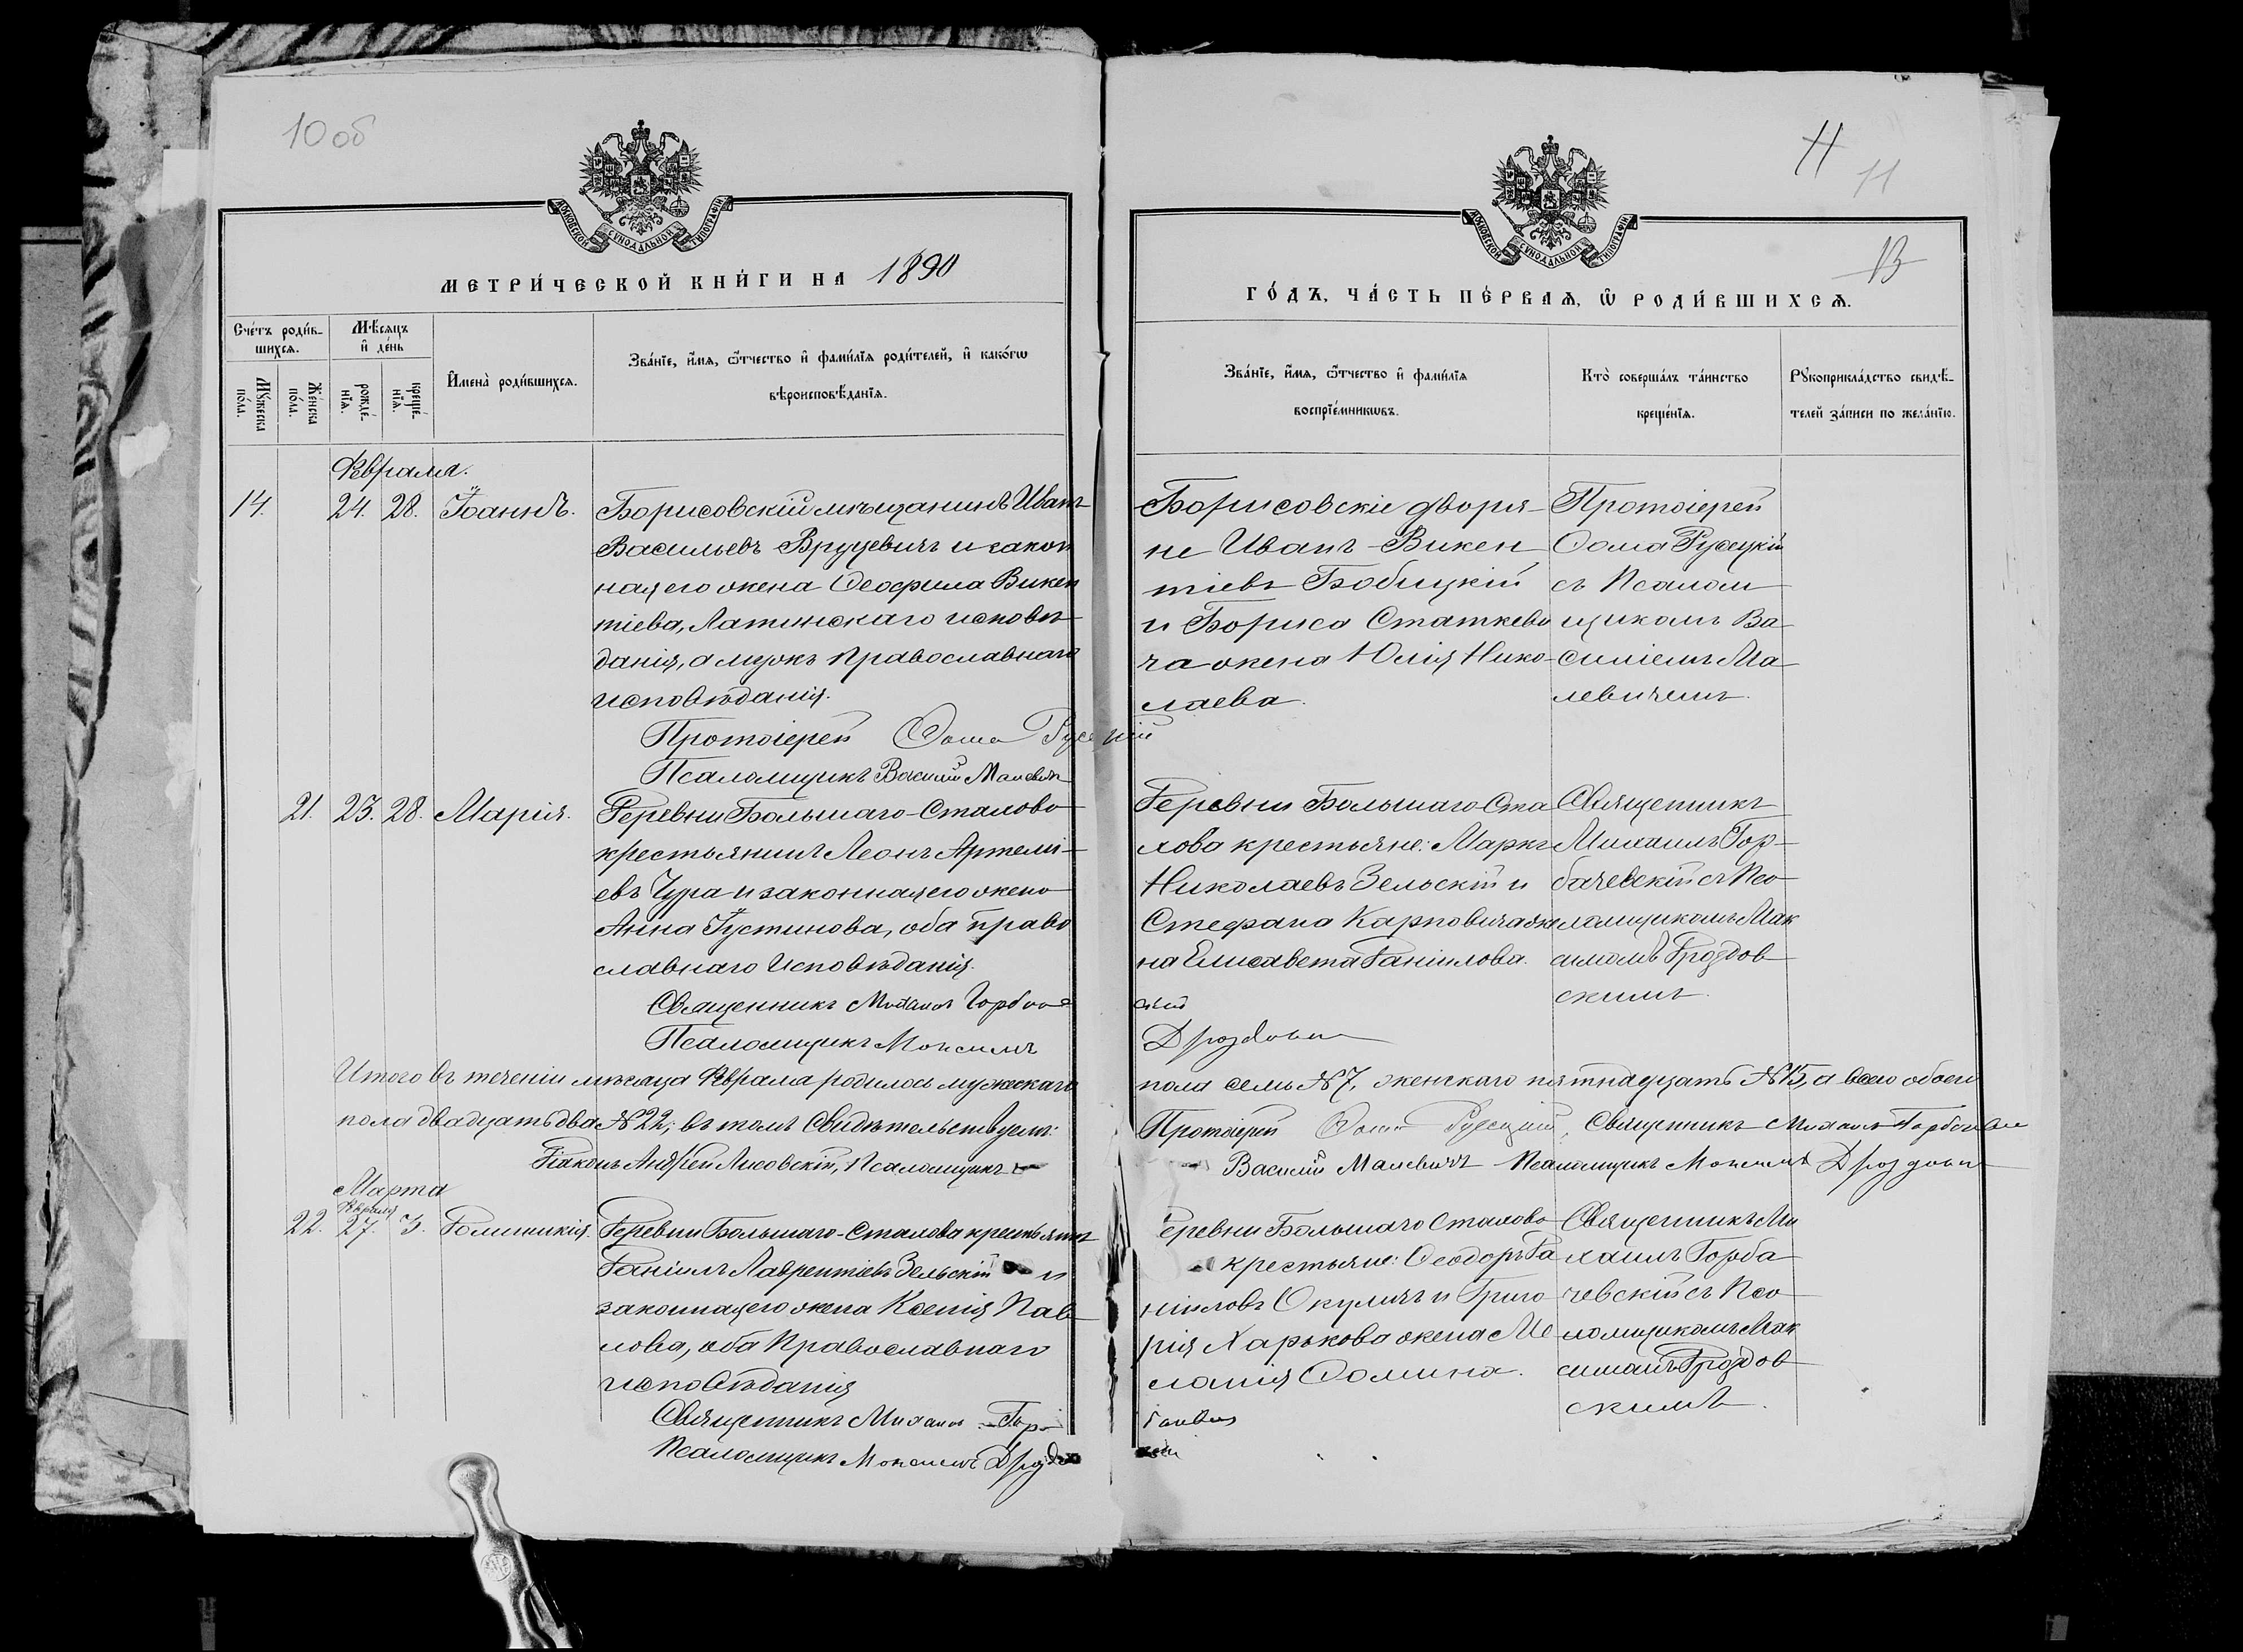 10 об
МОСКОВСКОЙ СѴНОДАЛЬНОЙ ТИПОГРАФІИ
МЕТРИ́ЧЕСКОЙ КНИ́ГИ НА 1890
Сче́тъ роди́в-
шихсѧ.
Мѣ́сѧцъ
и҆ де́нь
Мꙋ́жеска
по́ла.
Же́нска
по́ла.
рожде́-
нїѧ.
креще́-
нїѧ.
И҆мена̀ роди́вшихсѧ.
Зва́нїе, и҆́мѧ, ѻ҆́тчество и҆ фами́лїѧ роди́телей, и҆ како́гѡ
вѣроисповѣ́данїѧ.
Февраля.
14. 24. 28. Іоаннъ.
Борисовскій мѣщанинъ Иванъ
Васильевъ Вруцевичъ и закон
ная его жена Ѳеофила Викен
тіева, Латинскаго исповѣ-
данія, а мужъ Православнаго
исповѣданія.
Протоіерей Ѳома Русецкій
Псаломщикъ Василій Малевичъ
21. 23. 28. Марія.
Деревни Большаго-Сталова
крестьянинъ Леонъ Артемі-
евъ Чура и законная его жена
Анна Іустинова, оба право
славнаго Исповѣданія.
Священникъ Михаилъ Горбаче
Псаломщикъ Максимъ
Итого въ теченіи мѣсяца Февраля родилось мужескаго
пола двадцать два №22, въ томъ Свидѣтельствуемъ:
Діаконъ Андрей Лисовскій, Псаломщикъ
Марта
Февраля
22. 27. 3. Домникія.
Деревни Большаго-Сталова крестьянинъ
Даніилъ Лаврентіевъ Зельскій и
законная его жена Ксенія Пав
лова, оба Православнаго
исповѣданія
Священникъ Михаилъ Гор
Псаломщикъ Максимъ Дроздо
11
11
13
МОСКОВСКОЙ СѴНОДАЛЬНОЙ ТИПОГРАФІИ
ГО́ДЪ, ЧА́СТЬ ПЕ́РВАѦ, Ѡ҆ РОДИ́ВШИХСѦ.
Зва́нїе, и҆́мѧ, ѻ҆́тчество и҆ фами́лїѧ
воспрїе́мникѡвъ.
Кто̀ соверша́лъ та́инство
креще́нїѧ.
Рꙋкоприкла́дство свидѣ́-
телей за́писи по жела́нїю.
Борисовскіе дворя-
не Иванъ Викен
тіевъ Бобицкій
и Бориса Статкеви
ча жена Юлія Нико-
лаева.
Протоіерей
Ѳома Русецкій
съ Псалом
щикомъ Ва-
силіемъ Ма-
левичемъ.
Деревни Большаго Ста
лова крестьяне: Маркъ
Николаевъ Зельскій и
Стефана Карповича же
на Елисавета Даніилова.
скій
Дроздовскі
Священникъ
Михаилъ Гор-
бачевскій съ Пса-
ломщикомъ Мак
симомъ Дроздов-
скимъ.
пола семь №7, женскаго пятнадцать №15, а всего обоего
Протоіерей Ѳома Русецкій, Священникъ Михаилъ Горбачевскі
Василій Малевичъ Псаломщикъ Максимъ Дроздовскі
Деревни Большаго Сталова
крестьяне: Ѳеодоръ Да
ніиловъ Окуличъ и Григо-
рія Харькова жена Ме
ланія Ѳомина.
Священникъ Ми
хаилъ Горба
чевскій съ Пса-
ломщикомъ Мак
симомъ Дроздов-
скимъ.